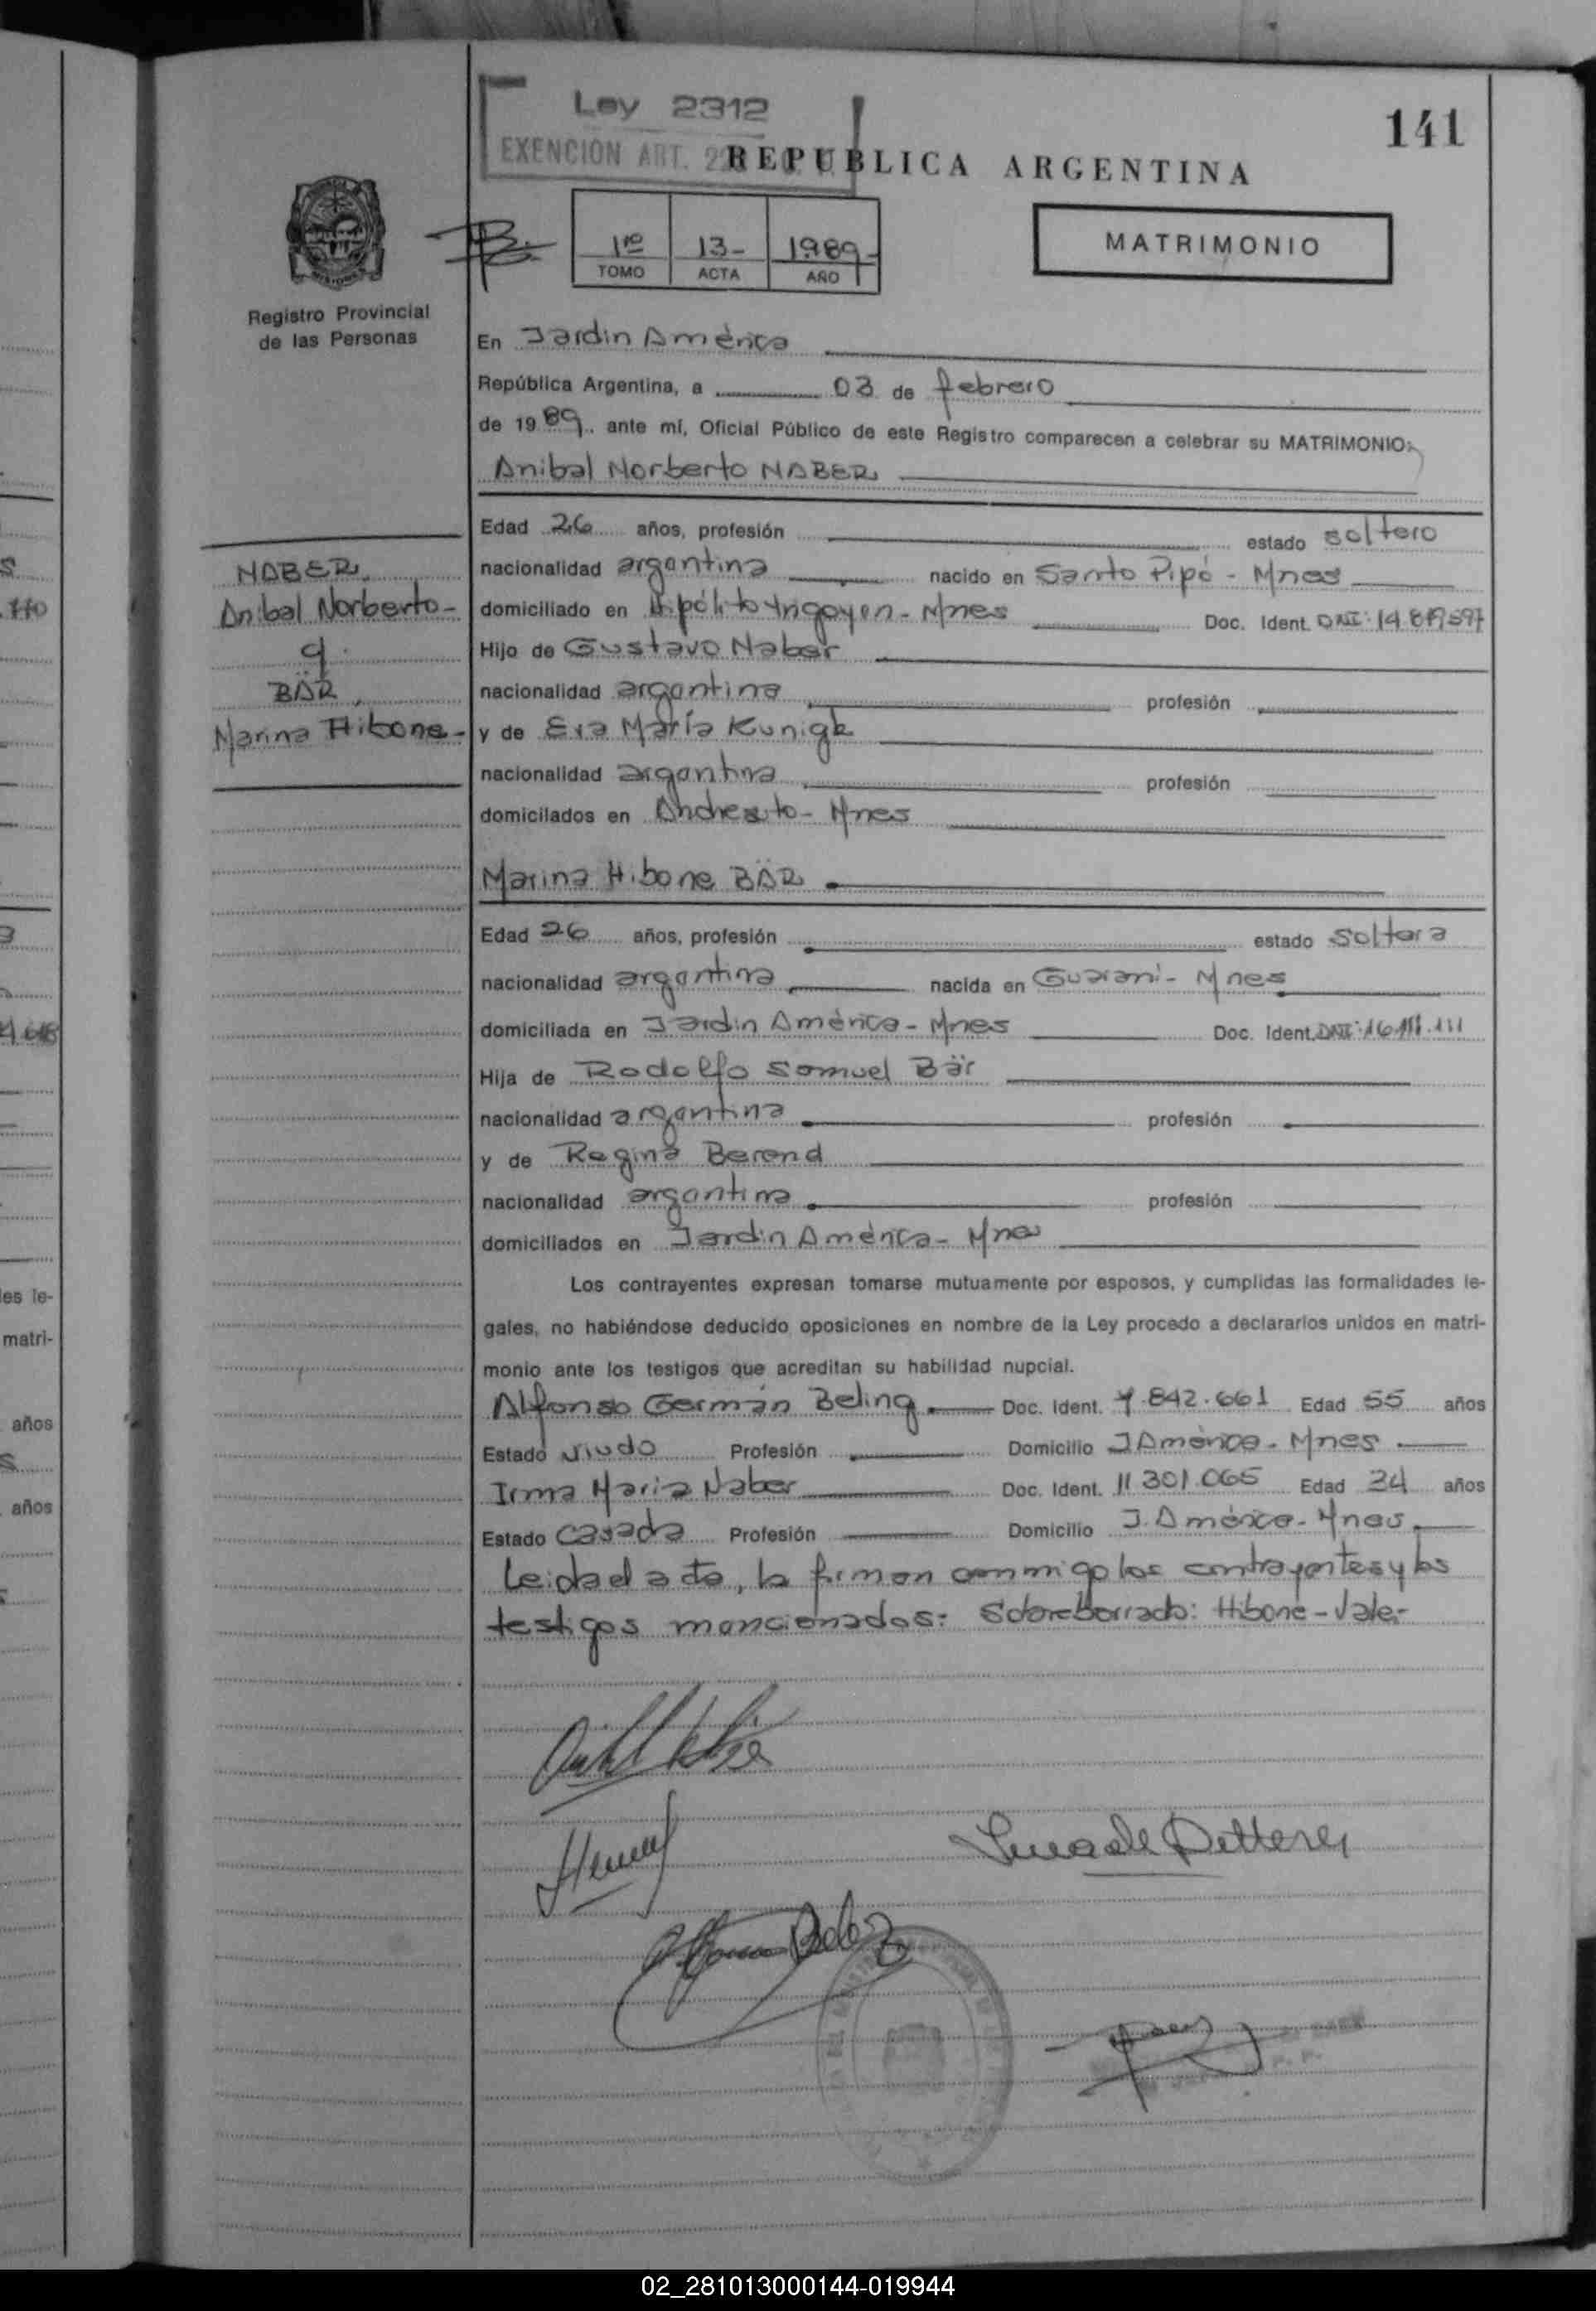 Ley 2312
EXENCION ART.
141
REPUBLICA ARGENTINA
1ro 13- 1989-
TOMO ACTA AÑO
MATRIMONIO
Registro Provincial
de las Personas
En Jardin América
República Argentina, a 03 de febrero
de 1989 ante mí, Oficial Público de este Registro comparecen a celebrar su MATRIMONIO:
Anibal Norberto NABER
Edad 26 años, profesión estado soltero
nacionalidad argentina nacido en Santo Pipó - Mnes
domiciliado en Hipólito Yrigoyen - Mnes Doc. Ident. DNI:
Hijo de Gustavo Naber
nacionalidad argentina profesión
y de Eva María Kunigk
nacionalidad argentina profesión
domicilados en Andresito - Mnes
NABER,
Anibal Norberto-
c/.
BÄR,
Marina Hibone-
Marina Hibone BÄR
Edad 26 años, profesión estado soltera
nacionalidad argentina nacida en Guaraní - Mnes
domiciliada en Jardin América - Mnes Doc. Ident. DNI: 16.111.111
Hija de Rodolfo Samuel Bär
nacionalidad argentina profesión
y de Regina Berend
nacionalidad argentina profesión
domiciliados en Jardin América - Mnes
Los contrayentes expresan tomarse mutuamente por esposos, y cumplidas las formalidades le-
gales, no habiéndose deducido oposiciones en nombre de la Ley procedo a declararlos unidos en matri-
monio ante los testigos que acreditan su habilidad nupcial.
Alfonso Germán Beling Doc. Ident. 7.842.661 Edad 55 años
Estado viudo Profesión Domicilio J América - Mnes
Irma Maria Naber Doc. Ident. 11 301.065 Edad 34 años
Estado casada Profesión Domicilio J. América - Mnes
Leida el acta, la firman conmigo los contrayentes y los
testigos mencionados: Sobreborrado: Hibone - Vale.-
02_281013000144-019944